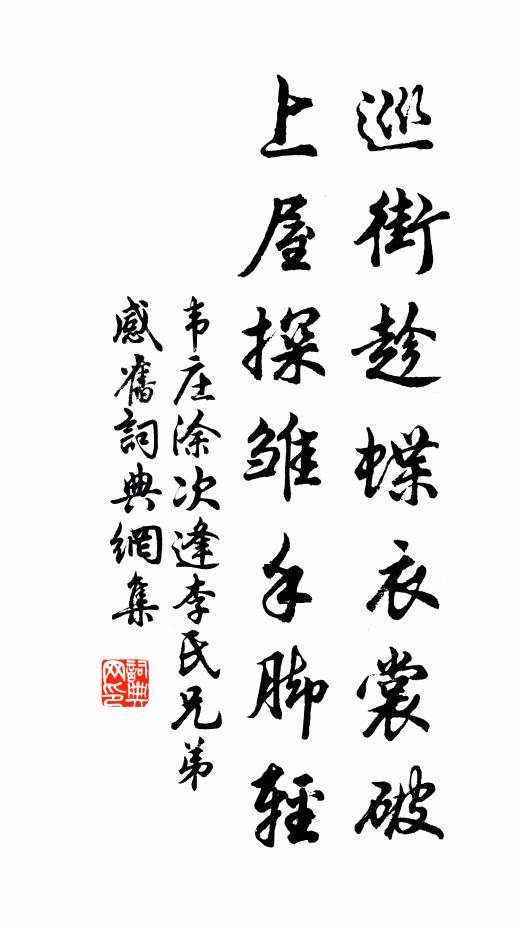 巡街趁蝶衣裳破
上屋探雏手脚轻
韦庄涂次逢李氏兄弟
感舊詞典網集
詞典
网印